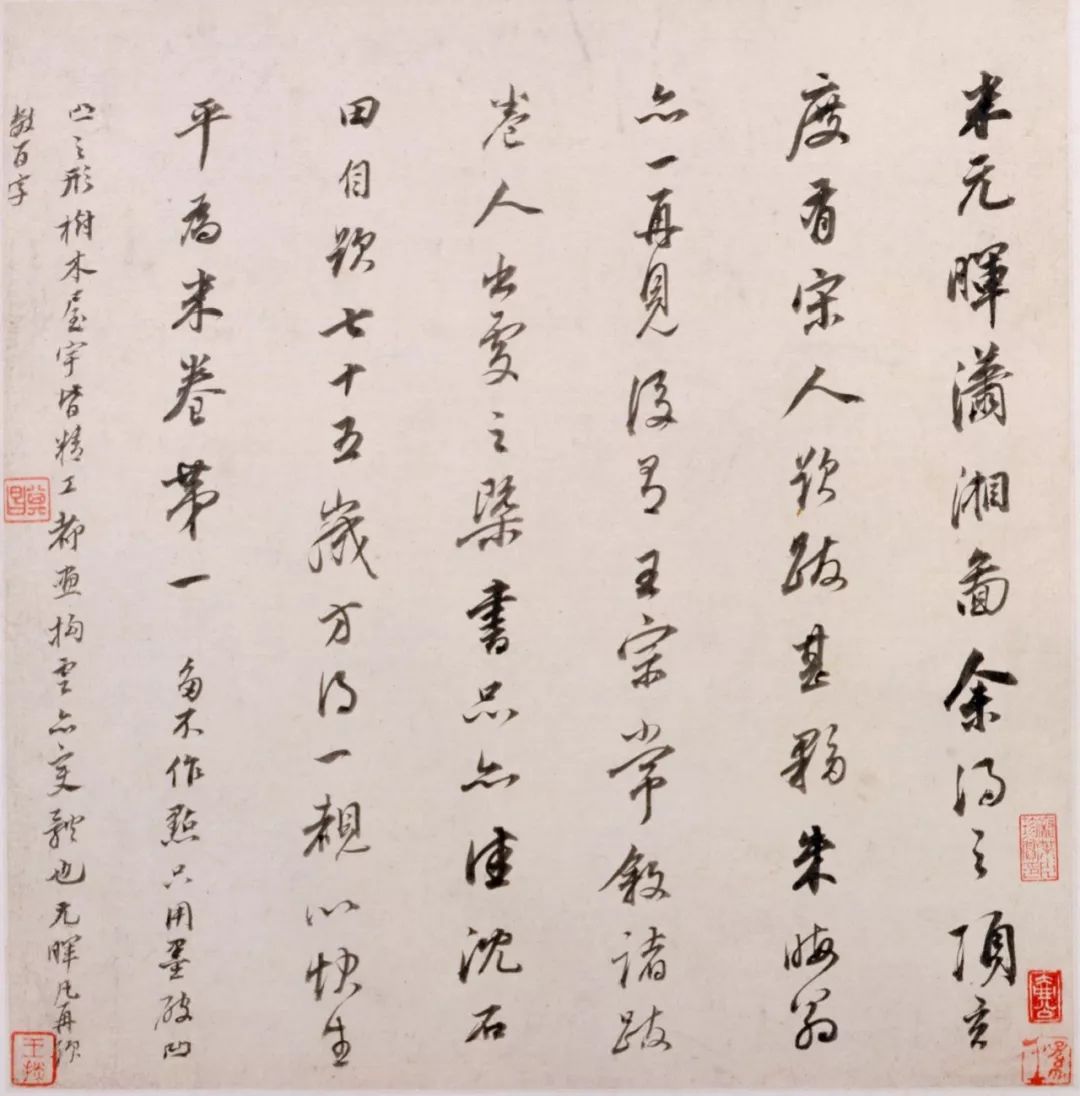 米元暉瀟湘圖余得之項玄
度有宋人題跋甚夥朱晦翁
亦一再見後有王宗常敘諸跋
卷人出處之槩書品亦佳沈石
田自題七十五歲方得一觀以快生
平為米卷第一 多不作點只用墨破凹
凸之形樹木屋宇皆精工都画拘雲亦変體也元暉凡再題
數百字